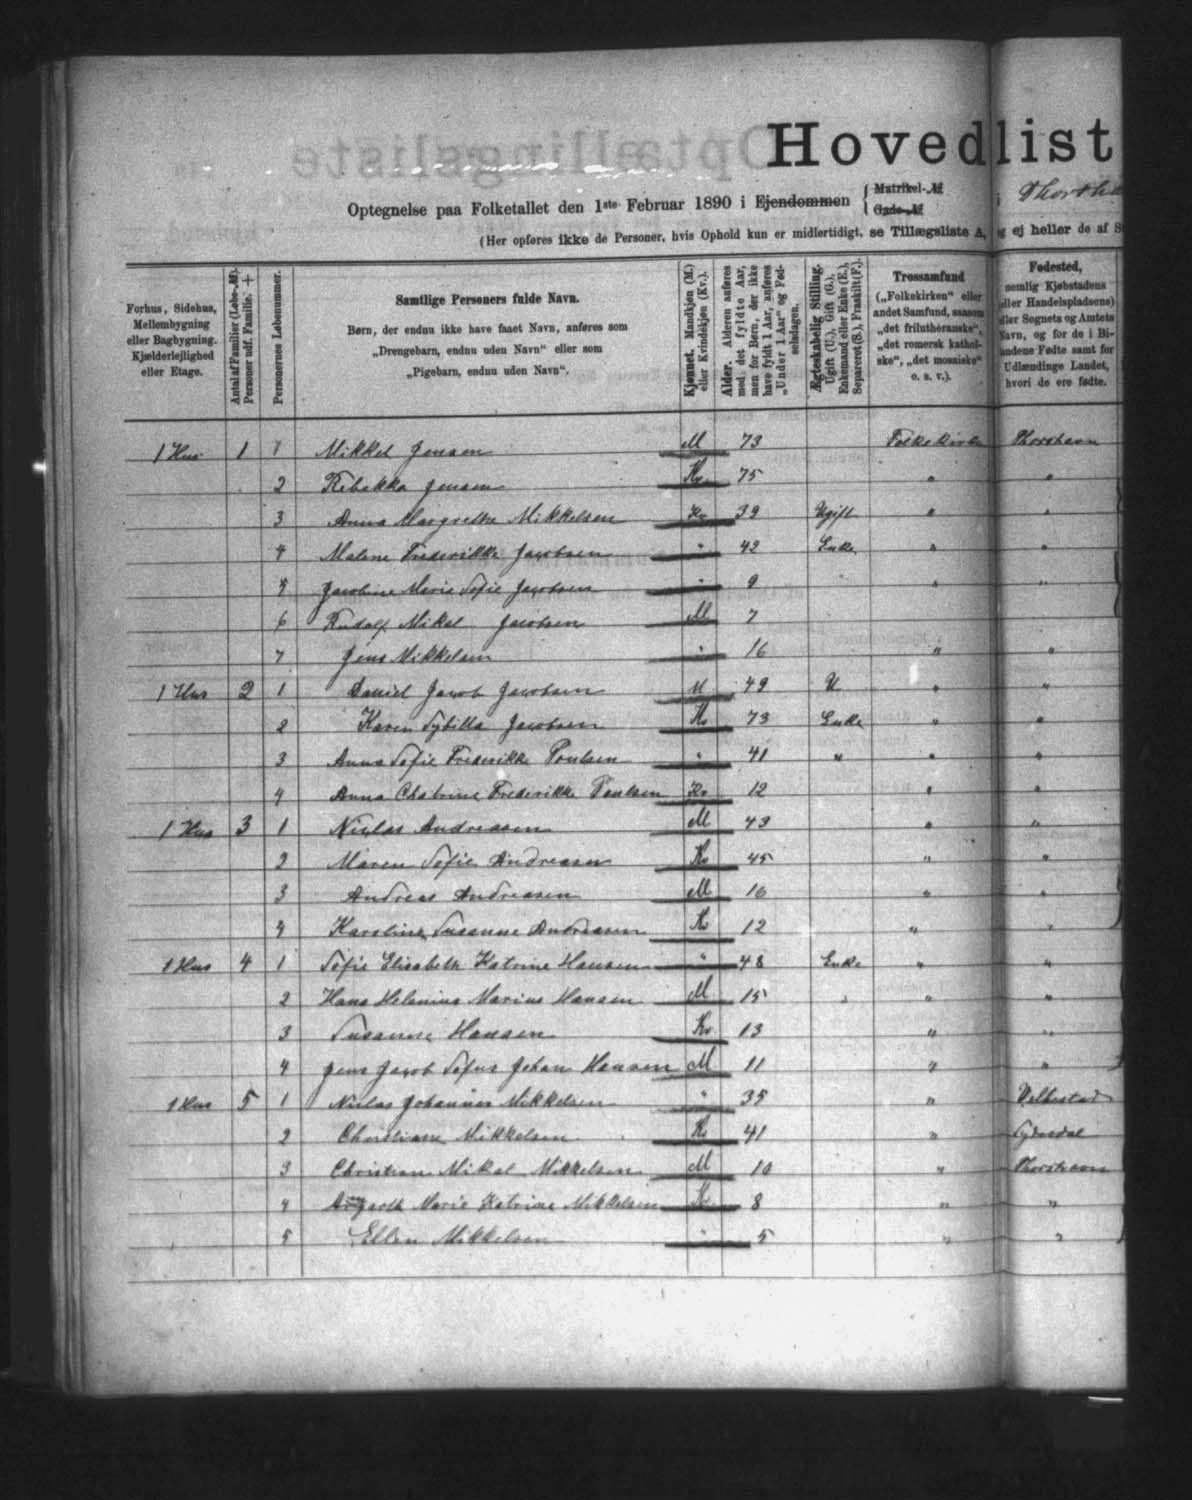 Hovedlist
Optegnelse paa Folketallet den 1ste Februar 1890 i Ejendommen { Matrikel-№ Gade-№ i
(Her opføres ikke de Personer, hvis Ophold kun er midlertidigt, se Tillægsliste A, og ej heller de af S
Forhus, Sidehus, Mellembygning eller Bagbygning. Kjælderlejlighed eller Etage.
Antal af Familier (Løbe-№). Personer udf. Familie. +
Personernes Løbenummer.
Samtlige Personers fulde Navn.
Børn, der endnu ikke have faaet Navn, anføres som
„Drengebarn, endnu uden Navn“ eller som
„Pigebarn, endnu uden Navn“.
Kjønnet. Mandkjøn (M.) eller Kvindekjøn (Kv.).
Alder. Alderen anføres med det fyldte Aar, men for Børn, der ikke have fyldt 1 Aar, anføres „Under 1 Aar“ og Fødselsdagen.
Ægteskabelig Stilling. Ugift (U.), Gift (G.), Enkemand eller Enke (E.), Separeret (S.), Fraskilt (F.).
Trossamfund („Folkekirken“ eller andet Samfund, saasom „det frilutheranske“, „det romersk katholske“, „det mosaiske“ o. s. v.).
Fødested, nemlig Kjøbstadens eller Handelspladsens) eller Sognets og Amtets Navn, og for de i Bilandene Fødte samt for Udlændinge Landet, hvori de ere fødte.
1 Hus 1 1 Mikkel Jensen M 73 Folkekirke Thorshavn
2 Rebekka Jensen Kv 75 " "
3 Anna Margrethe Mikkelsen Kv 39 Ugift " "
4 Malene Frederikke Jacobsen " 42 Enke " "
5 Jacobine Marie Sofie Jacobsen " 9 " "
6 Rudolf Mikal Jacobsen M 7
7 Jens Mikkelsen " 16 " "
1 Hus 2 1 Daniel Jacob Jacobsen M 49 U " "
2 Karen Sybilla Jacobsen Kv 73 Enke " "
3 Anna Sofie Frederikke Poulsen " 41 " " "
4 Anna Chatrine Frederikke Poulsen Kv 12 " "
1 Hus 3 1 Niclas Andreasen M 43 " "
2 Maren Sofie Andreasen Kv 45 " "
3 Andreas Andreasen M 16 " "
4 Karoline Susanne Andreasen Kv 12 " "
1 Hus 4 1 Sofie Elisabeth Katrine Hansen " 48 Enke " "
2 Hans Marius Hansen M 15 " "
3 Susanne Hansen Kv 13 " "
4 Jens Jacob Sofus Johan Hansen M 11 " "
1 Hus 5 1 Niclas Johannes Mikkelsen " 35 " Velbestad
2 Christiane Mikkelsen Kv 41 "
3 Christian Mikal Mikkelsen M 10 " Thorshavn
4 Marie Katrine Mikkelsen Kv 8 " "
5 Ellen Mikkelsen " 5 " "